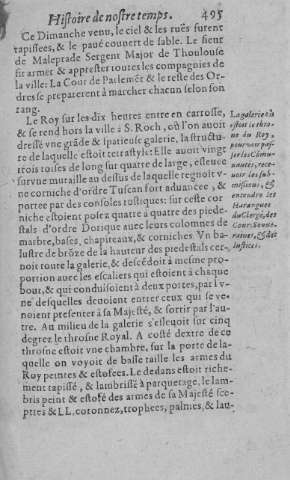 Histoire de nostre temps. 495
Ce Dimanche venu, le ciel & les ruës furent
tapissees, & le paué couuert de sable. Le sieur
de Maleprade Sergent Major de Thoulouse
fit armer & apprester toutes les compagnies de
la ville: La Cour de Parlemēt & le reste des Or-
dres se preparerent à marcher chacun selon son
rang.
Le Roy sur les dix heures entre en carrosse,
& se rend hors la ville à S. Roch, où l'on auoit
dressé vne grāde & spatieuse galerie, la structu-
re de laquelle estoit tetrastyle: Elle auoit vingt
trois toises de long sur quatre de large, esleuee
sur vne muraille au dessus de laquelle regnoit v-
ne corniche d'ordre Tuscan fort aduancee, &
portee par des consoles rustiques: sur ceste cor
niche estoient posez quatre à quatre des piede-
stals d'ordre Dorique auec leurs colomnes de
marbre, bases, chapiteaux, & corniches. Vn ba-
lustre de brōze de la hauteur des piedestals cer-
noit toute la galerie, & descēdoit à mesme pro-
portion auec les escaliers qui estoient à chaque
bout, & qui conduisoient à deux portes, par l'v-
ne desquelles deuoient entrer ceux qui se ve-
noient presenter à sa Majesté, & sortir par l'au-
tre. Au milieu de la galerie s'esleuoit sur cinq
degrez le throsne Royal. A costé dextre de ce
throsne estoit vne chambre, sur la porte de la-
quelle on voyoit de basse taille les armes du
Roy peintes & estofees. Le dedans estoit riche-
ment tapissé, & lambrissé à parquetage, le lam-
bris peint & estofé des armes de sa Majesté sce-
ptres & LL. coronnez, trophees, palmes, & lau-
La galerie où
estoit le thro-
ne du Roy,
pour voir pas-
ser les Cōmu-
nautez, rece-
uoir les sub-
missions, &
entendre les
Harangues
du Clergé, des
Cours Souue-
raines, & des
Iustices.